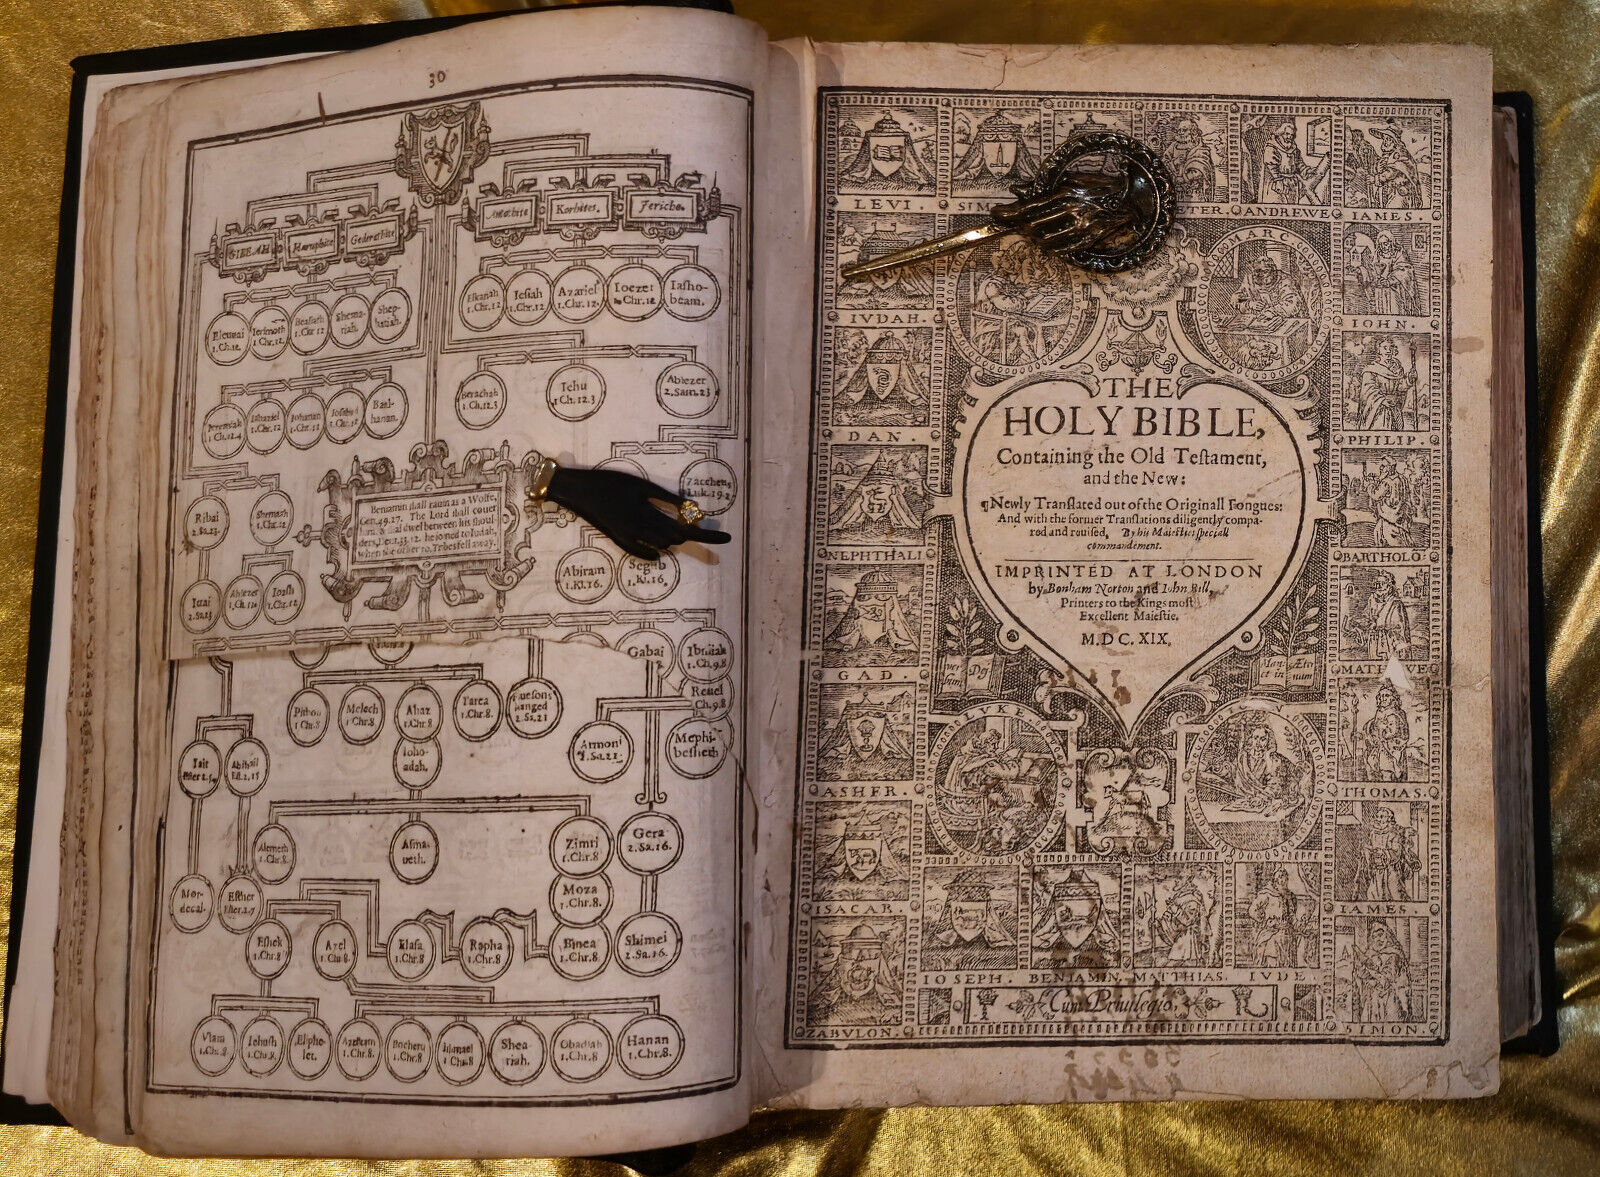 30
GIBEAH
Haruphite
Gederathite
Antothite
Korhites.
Jericho.
Eluzai
1.Ch.12.
Ierimoth
1.Chr.12.
Bealiah
1.Chr 12
Shema-
riah.
Shep-
hatiah.
Elkanah
1.Chr.12
Iesiah
1.Chr.12.
Azariel
1.Chr.12.
Ioezer
1.Chr.12
Iasho-
beam.
Ieremiah
1.Ch.12.4
Iahaziel
1.Chr.12
Iohanan
1.Chr.12
Iosabad
1.Chr.12
Baal-
hanan.
Berachah
1.Ch.12.3
Iehu
1.Ch.12.3
Abiezer
2.Sam.23
Ribai
2.Sa.23.
1.Ch.12
Zaccheus
Luk.19.2
Beniamin shall rauin as a Wolfe,
Gen.49.27. The Lord shall couer
him, & dwel between his shoul-
ders, Deut.33.12. he ioned to Iudah,
when the other 10. Tribes fell away.
Abiram
1.Kl.16.
Segub
1.Kl.16.
Ittai
2.Sa.23
Abiezer
1.Ch.12
Ioash
1.Ch.12
Gabai
Ibniiah
1.Ch.9.8
Reuel
1.Ch.9.8
Pithon
1.Ch.8
Melech
1.Chr.8
Ahaz
1.Chr.8
Tarea
1.Chr.8.
hanged
2.Sa.21
Armoni
2.Sa.21.
Mephi-
bosheth
Iair
Ester 2.5
Abihail
Est.2.15
Ieho-
adah.
Alemeth
1.Chr.8.
Asma-
ueth.
Zimri
1.Chr.8
Gera
2.Sa.16.
Mor-
decai.
Esther
Ester 2.7
Moza
1.Chr.8.
Eshek
1.Chr.8
Azel
1.Ch.8.
Elasa
1.Chr.8
Rapha
1.Chr.8
Binea
1.Chr.8.
Shimei
2.Sa.16.
Vlam
1.Chr.8.
Iehush
1.Chr.8.
Eliphe-
let.
Azrikam
1.Chr.8
Bocheru
1.Chr.8
Ishmael
1 Chr.8
Shea-
riah.
Obadiah
1.Chr.8
Hanan
1.Chr.8.
LEVI.
ANDREWE
IAMES.
MARC.
IVDAH.
IOHN.
DAN.
PHILIP.
NEPHTHALI
BARTHOLO:
GAD.
MATHEWE
ASHER.
THOMAS.
ISACAR.
IAMES.
ZABVLON.
SIMON.
THE
HOLY BIBLE,
Containing the Old Testament,
and the New:
¶Newly Translated out of the Originall Tongues:
And with the former Translations diligently compa-
red and reuised, By his Maiesties speciall
commandement.
IMPRINTED AT LONDON
by Bonham Norton and Iohn Bill,
Printers to the Kings most
Excellent Maiestie.
M.DC.XIX.
Ver
bum
Dei
Man
et in
Æter
num
LVKE
IOSEPH.
BENIAMIN.
MATTHIAS.
IVDE.
Cum Priuilegio